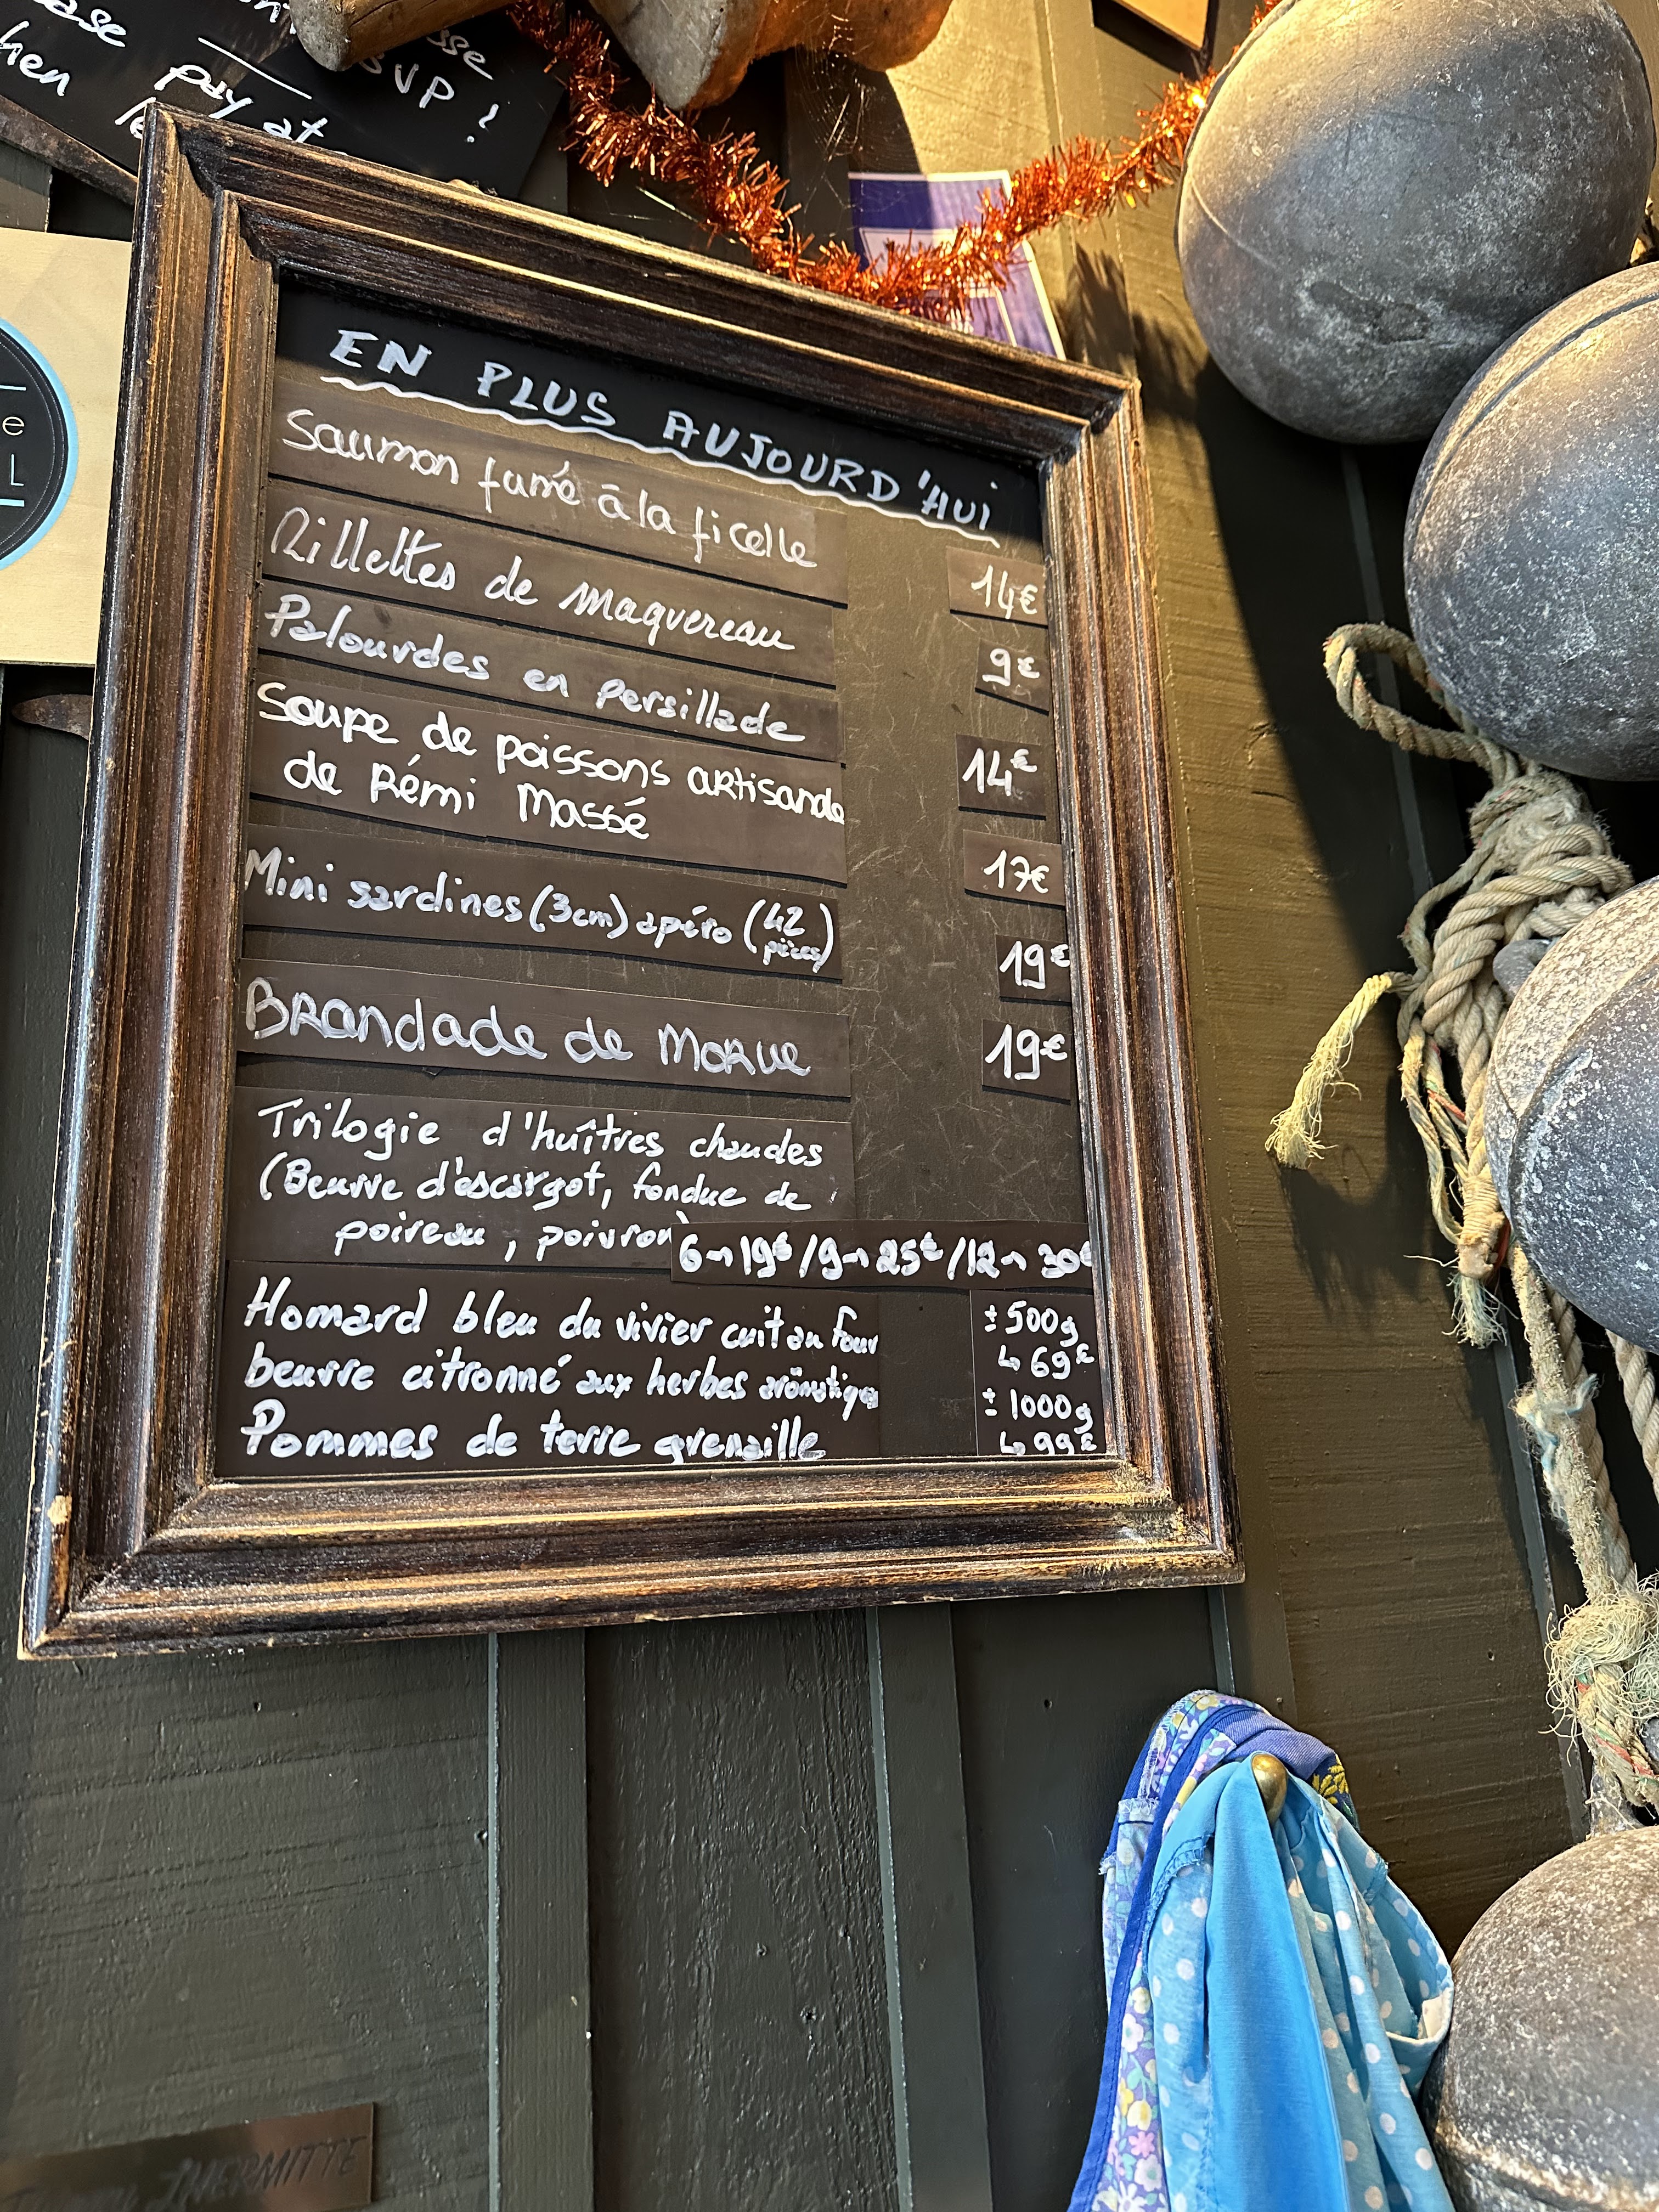 SVP !
pay at
e
L
EN PLUS AUJOURD'HUI
Saumon fumé à la ficelle 14€
Rillettes de maquereau 9€
Palourdes en persillade 14€
Soupe de poissons artisanale
de Rémi Massé 17€
Mini sardines (3cm) apéro (42 pièces) 19€
Brandade de Morue 19€
Trilogie d'huîtres chaudes
(Beurre d'escargot, fondue de
poireau, poivron)
6→19€/9→25€/12→30€
Homard bleu du vivier cuit au four ±500g
↳ 69€
beurre citronné aux herbes aromatiques ±1000g
Pommes de terre grenaille ↳ 99€
LHERMITTE